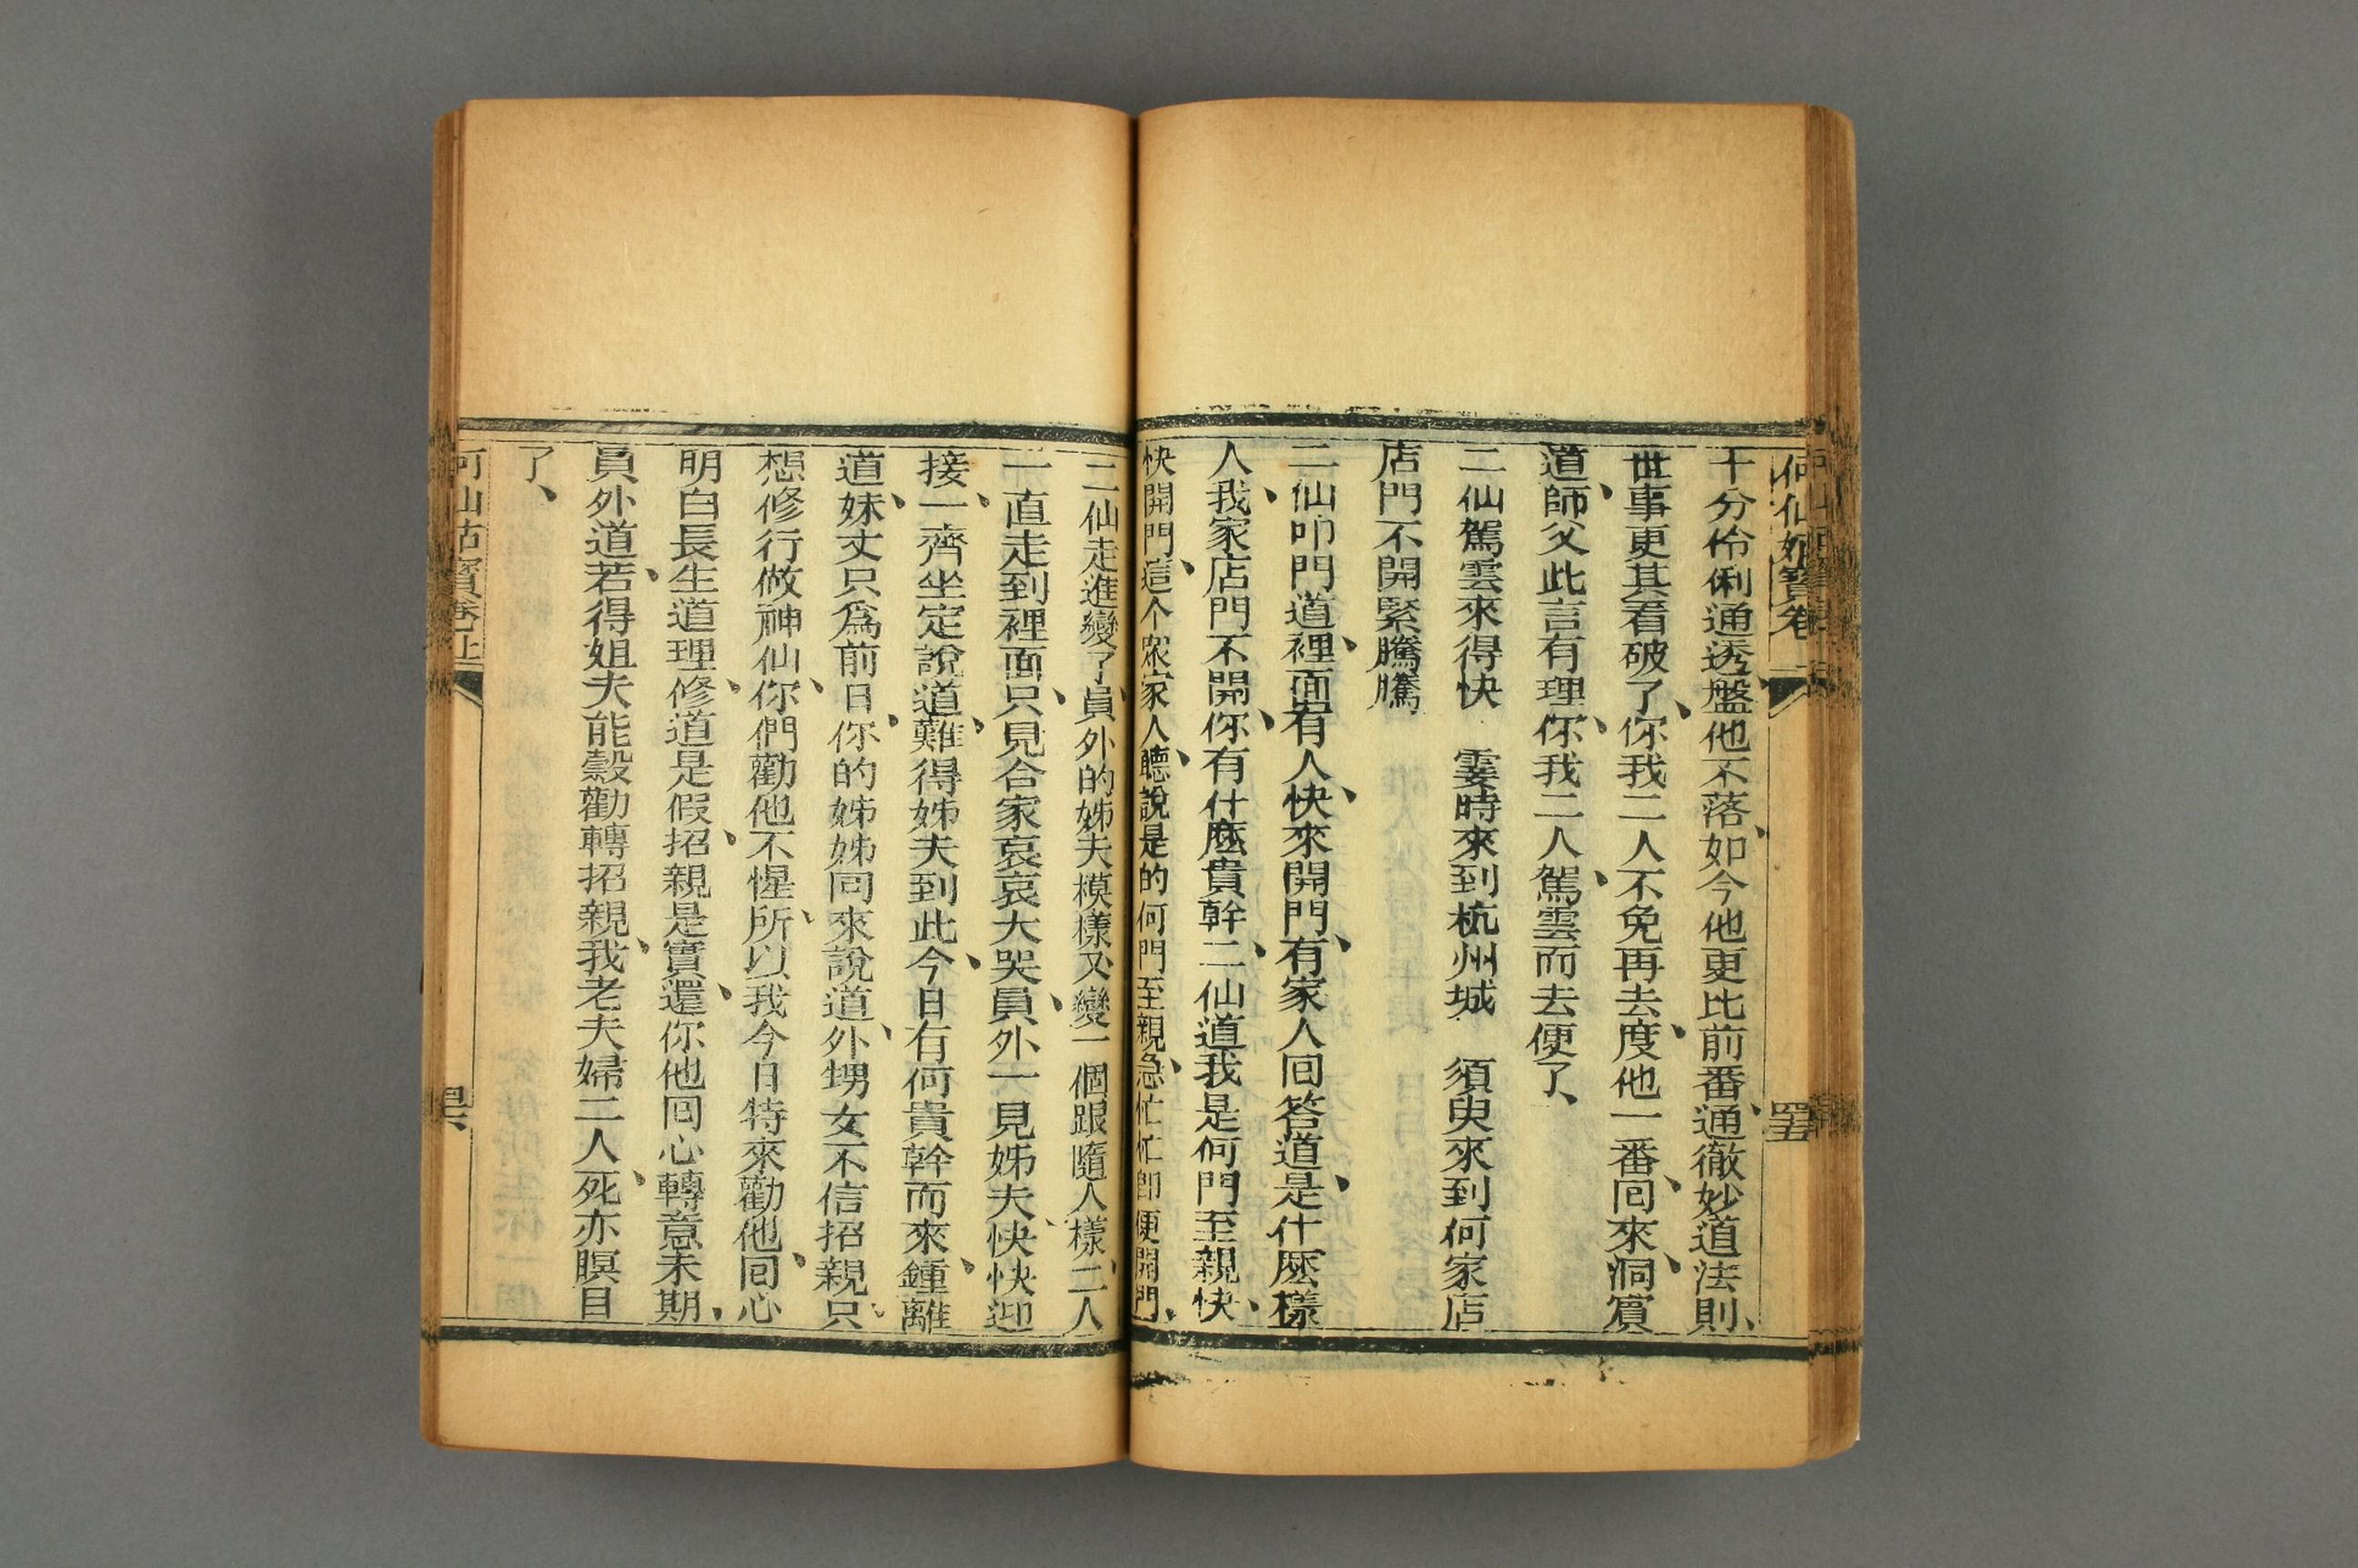 何仙姑寶卷
十分伶俐通透盤他不落、如今他更比前番、通徹妙道法則、
世事更其看破了、你我二人不免再去度他一番、囘來、洞賓
道、師父此言有理、你我二人、駕雲而去便了、
二仙駕雲來得快　霎時來到杭州城　須臾來到何家店
店門不開緊騰騰
二仙叩門道、裡面有人、快來開門、有家人囘答道、是什麽樣
人、我家店門不開、你有什麽貴幹、二仙道我是何門至親、快
快開門、這个衆家人、聽說是的何門至親、急忙忙卽便開門、
二仙走進變了、員外的姊夫模樣又變一個跟隨人樣、二人
一直走到裡面、只見合家哀哀大哭、員外一見姊夫、快快迎
接、一齊坐定說道、難得姊夫到此、今日有何貴幹而來、鍾離
道、妹丈只爲前日、你的姊姊囘來說道、外甥女不信招親、只
想修行做神仙、你們勸他不惺、所以我今日特來勸他、囘心
明白長生道理、修道是假、招親是實、還你他囘心轉意未期、
員外道、若得姐夫能彀勸轉招親、我老夫婦二人、死亦瞑目
了、
何仙姑寶卷上